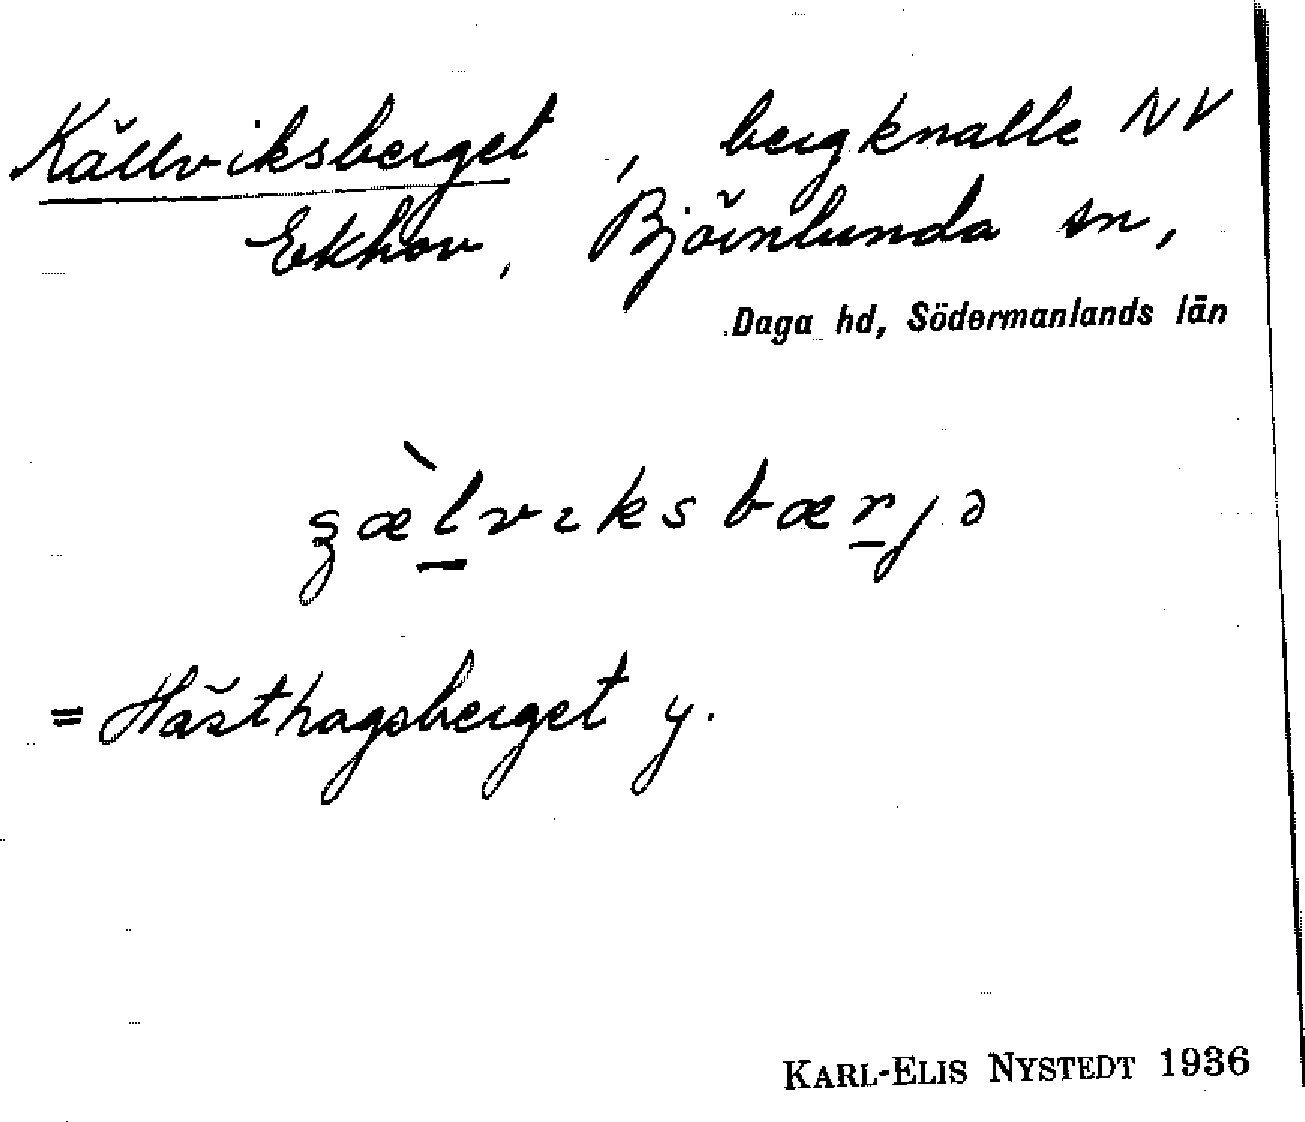 Källviksberget, bergknalle NV
Ekhov, Björnlunda sn,
Daga hd, Södermanlands län
= Hästhagsberget y.
KARL-ELIS NYSTEDT 1936